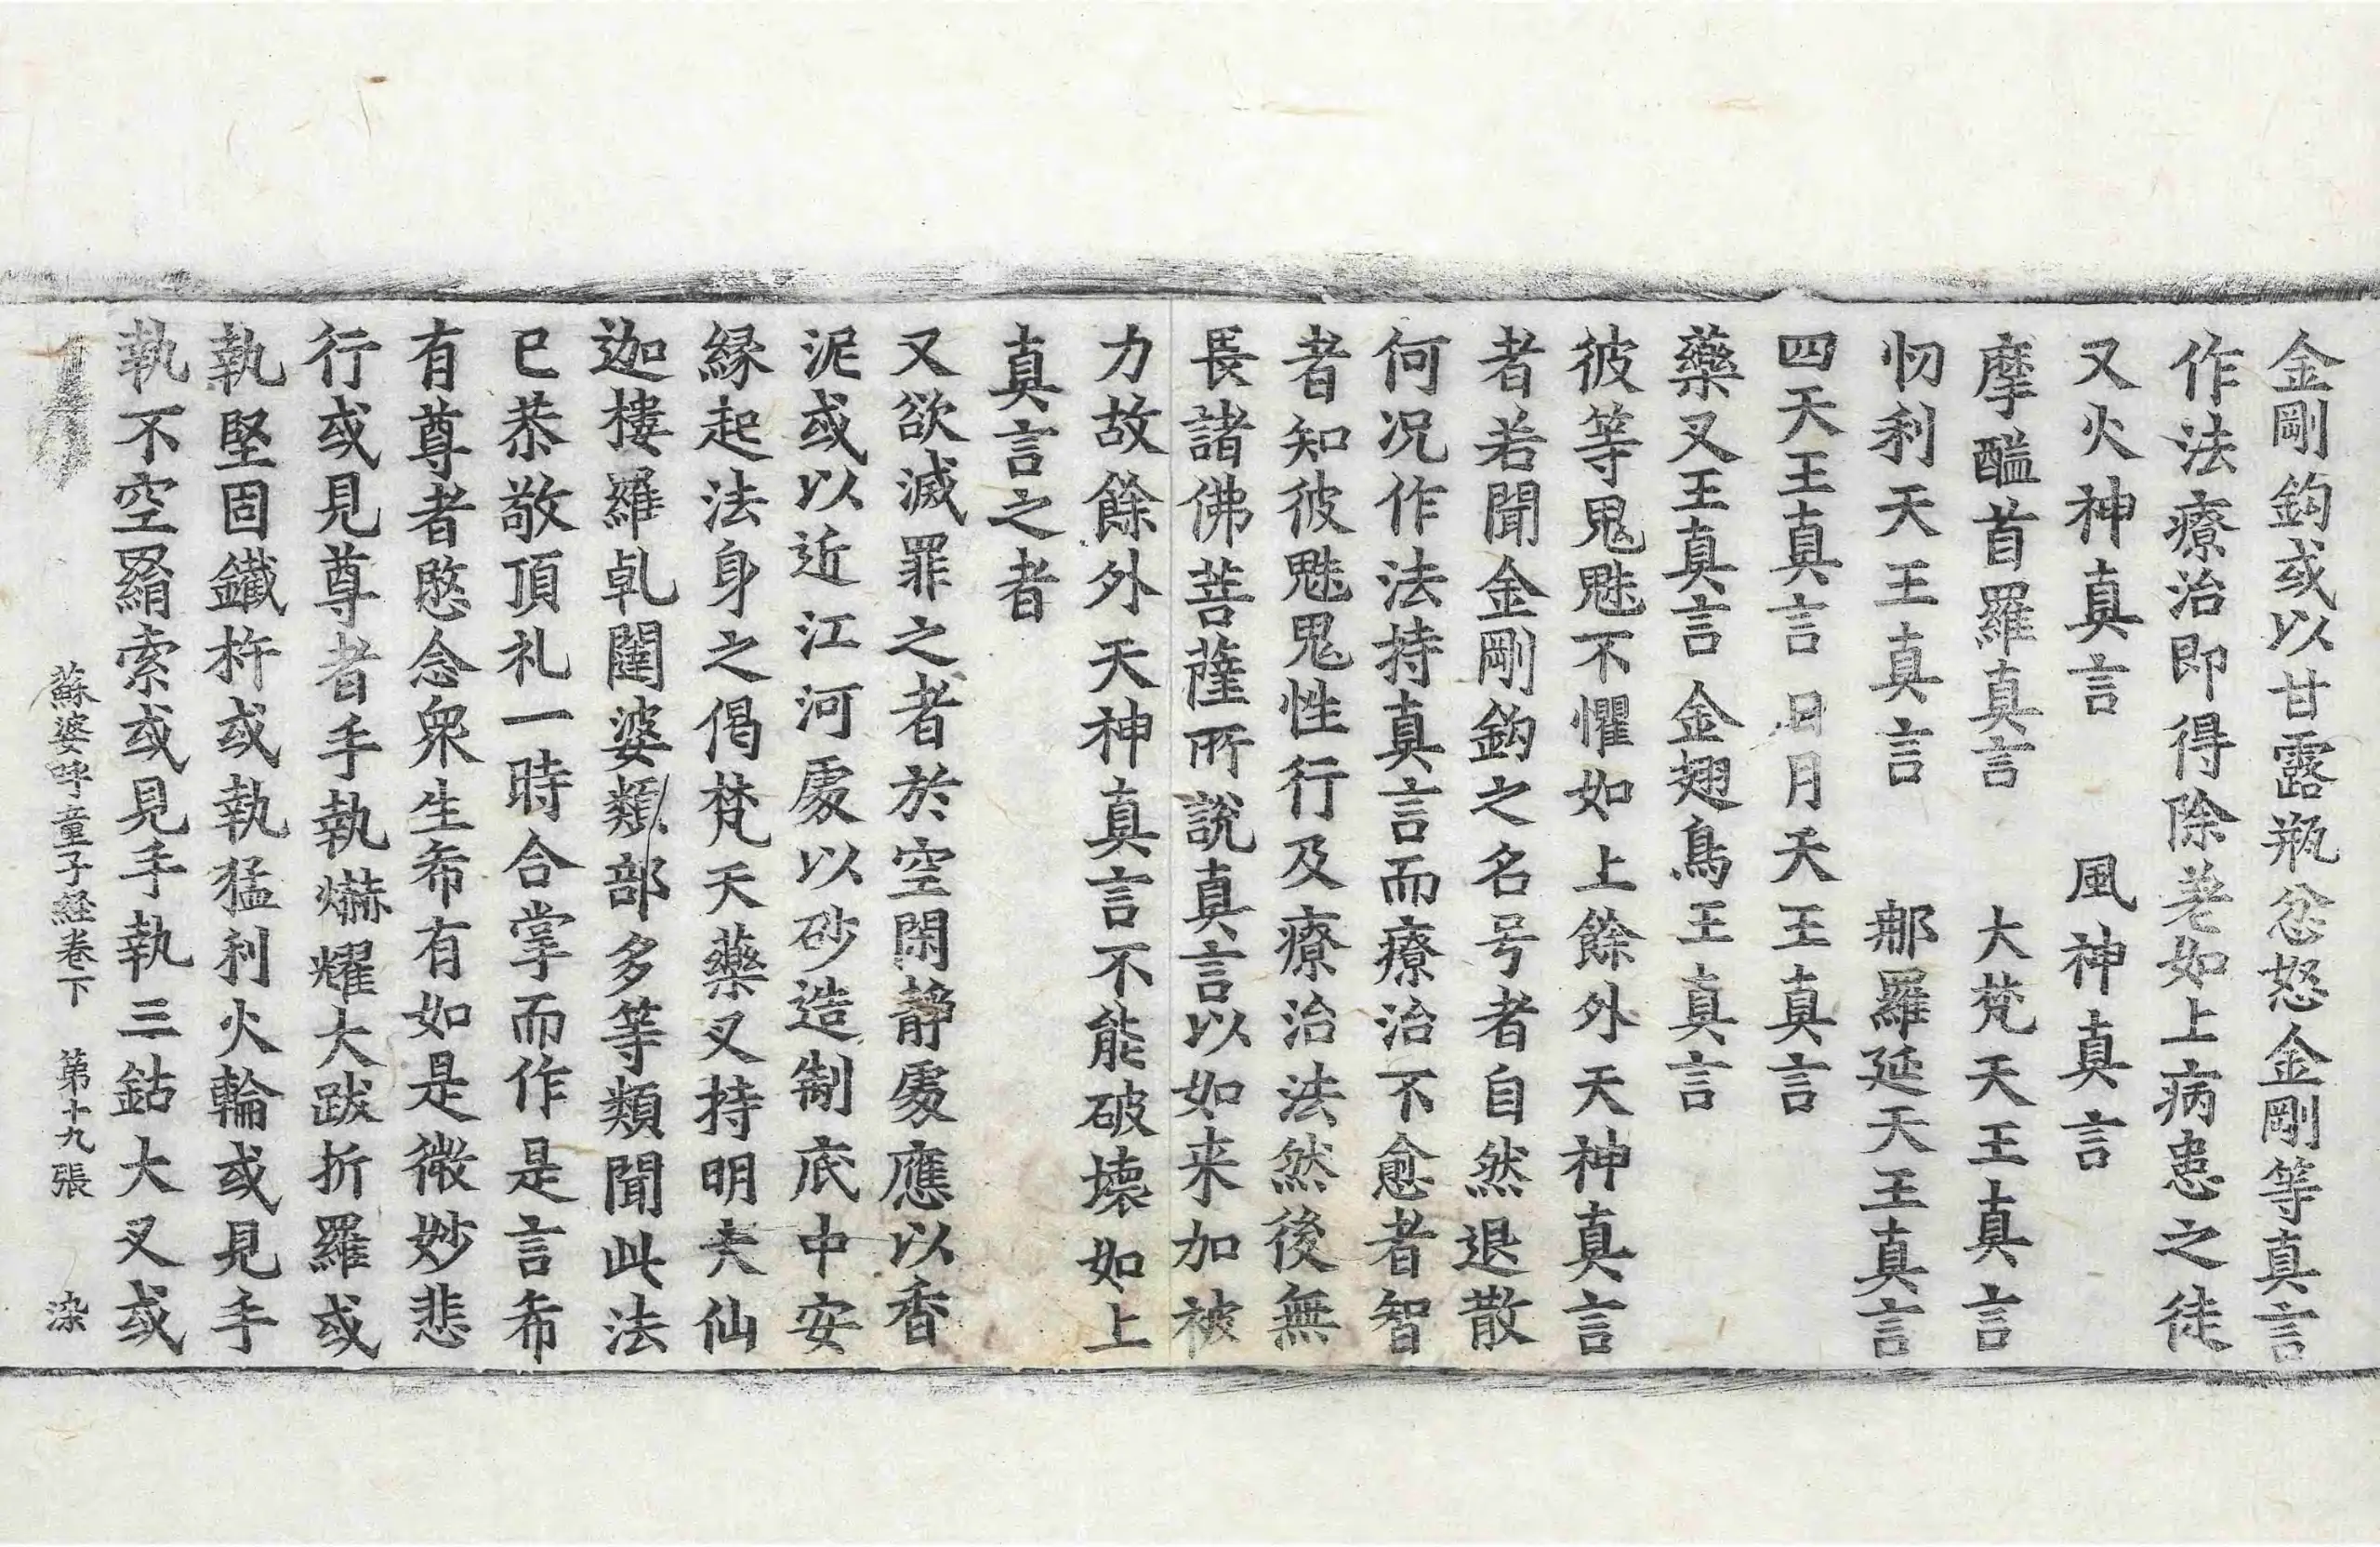 金剛鉤或以甘露瓶忿怒金剛等真言
作法療治即得除差如上病患之徒
又火神真言　風神真言
摩醯首羅真言　大梵天王真言
忉利天王真言　那羅延天王真言
四天王真言　日月天王真言
藥叉王真言　金翅鳥王真言
彼等鬼魅不懼如上餘外天神真言
者若聞金剛鉤之名号者自然退散
何况作法持真言而療治不愈者智
者知彼魅鬼性行及療治法然後無
長諸佛菩薩所說真言以如来加被
力故餘外天神真言不能破壞如上
真言之者
又欲滅罪之者於空閑靜處應以香
泥或以近江河處以砂造制底中安
緣起法身之偈梵天藥叉持明大仙
迦樓羅乹闥婆類部多等類聞此法
已恭敬頂礼一時合掌而作是言希
有尊者愍念衆生希有如是微妙悲
行或見尊者手執爀耀大跋折羅或
執堅固鐵杵或執猛利火輪或見手
執不空羂索或見手執三鈷大叉或
蘇婆呼童子経卷下　第十九張　染